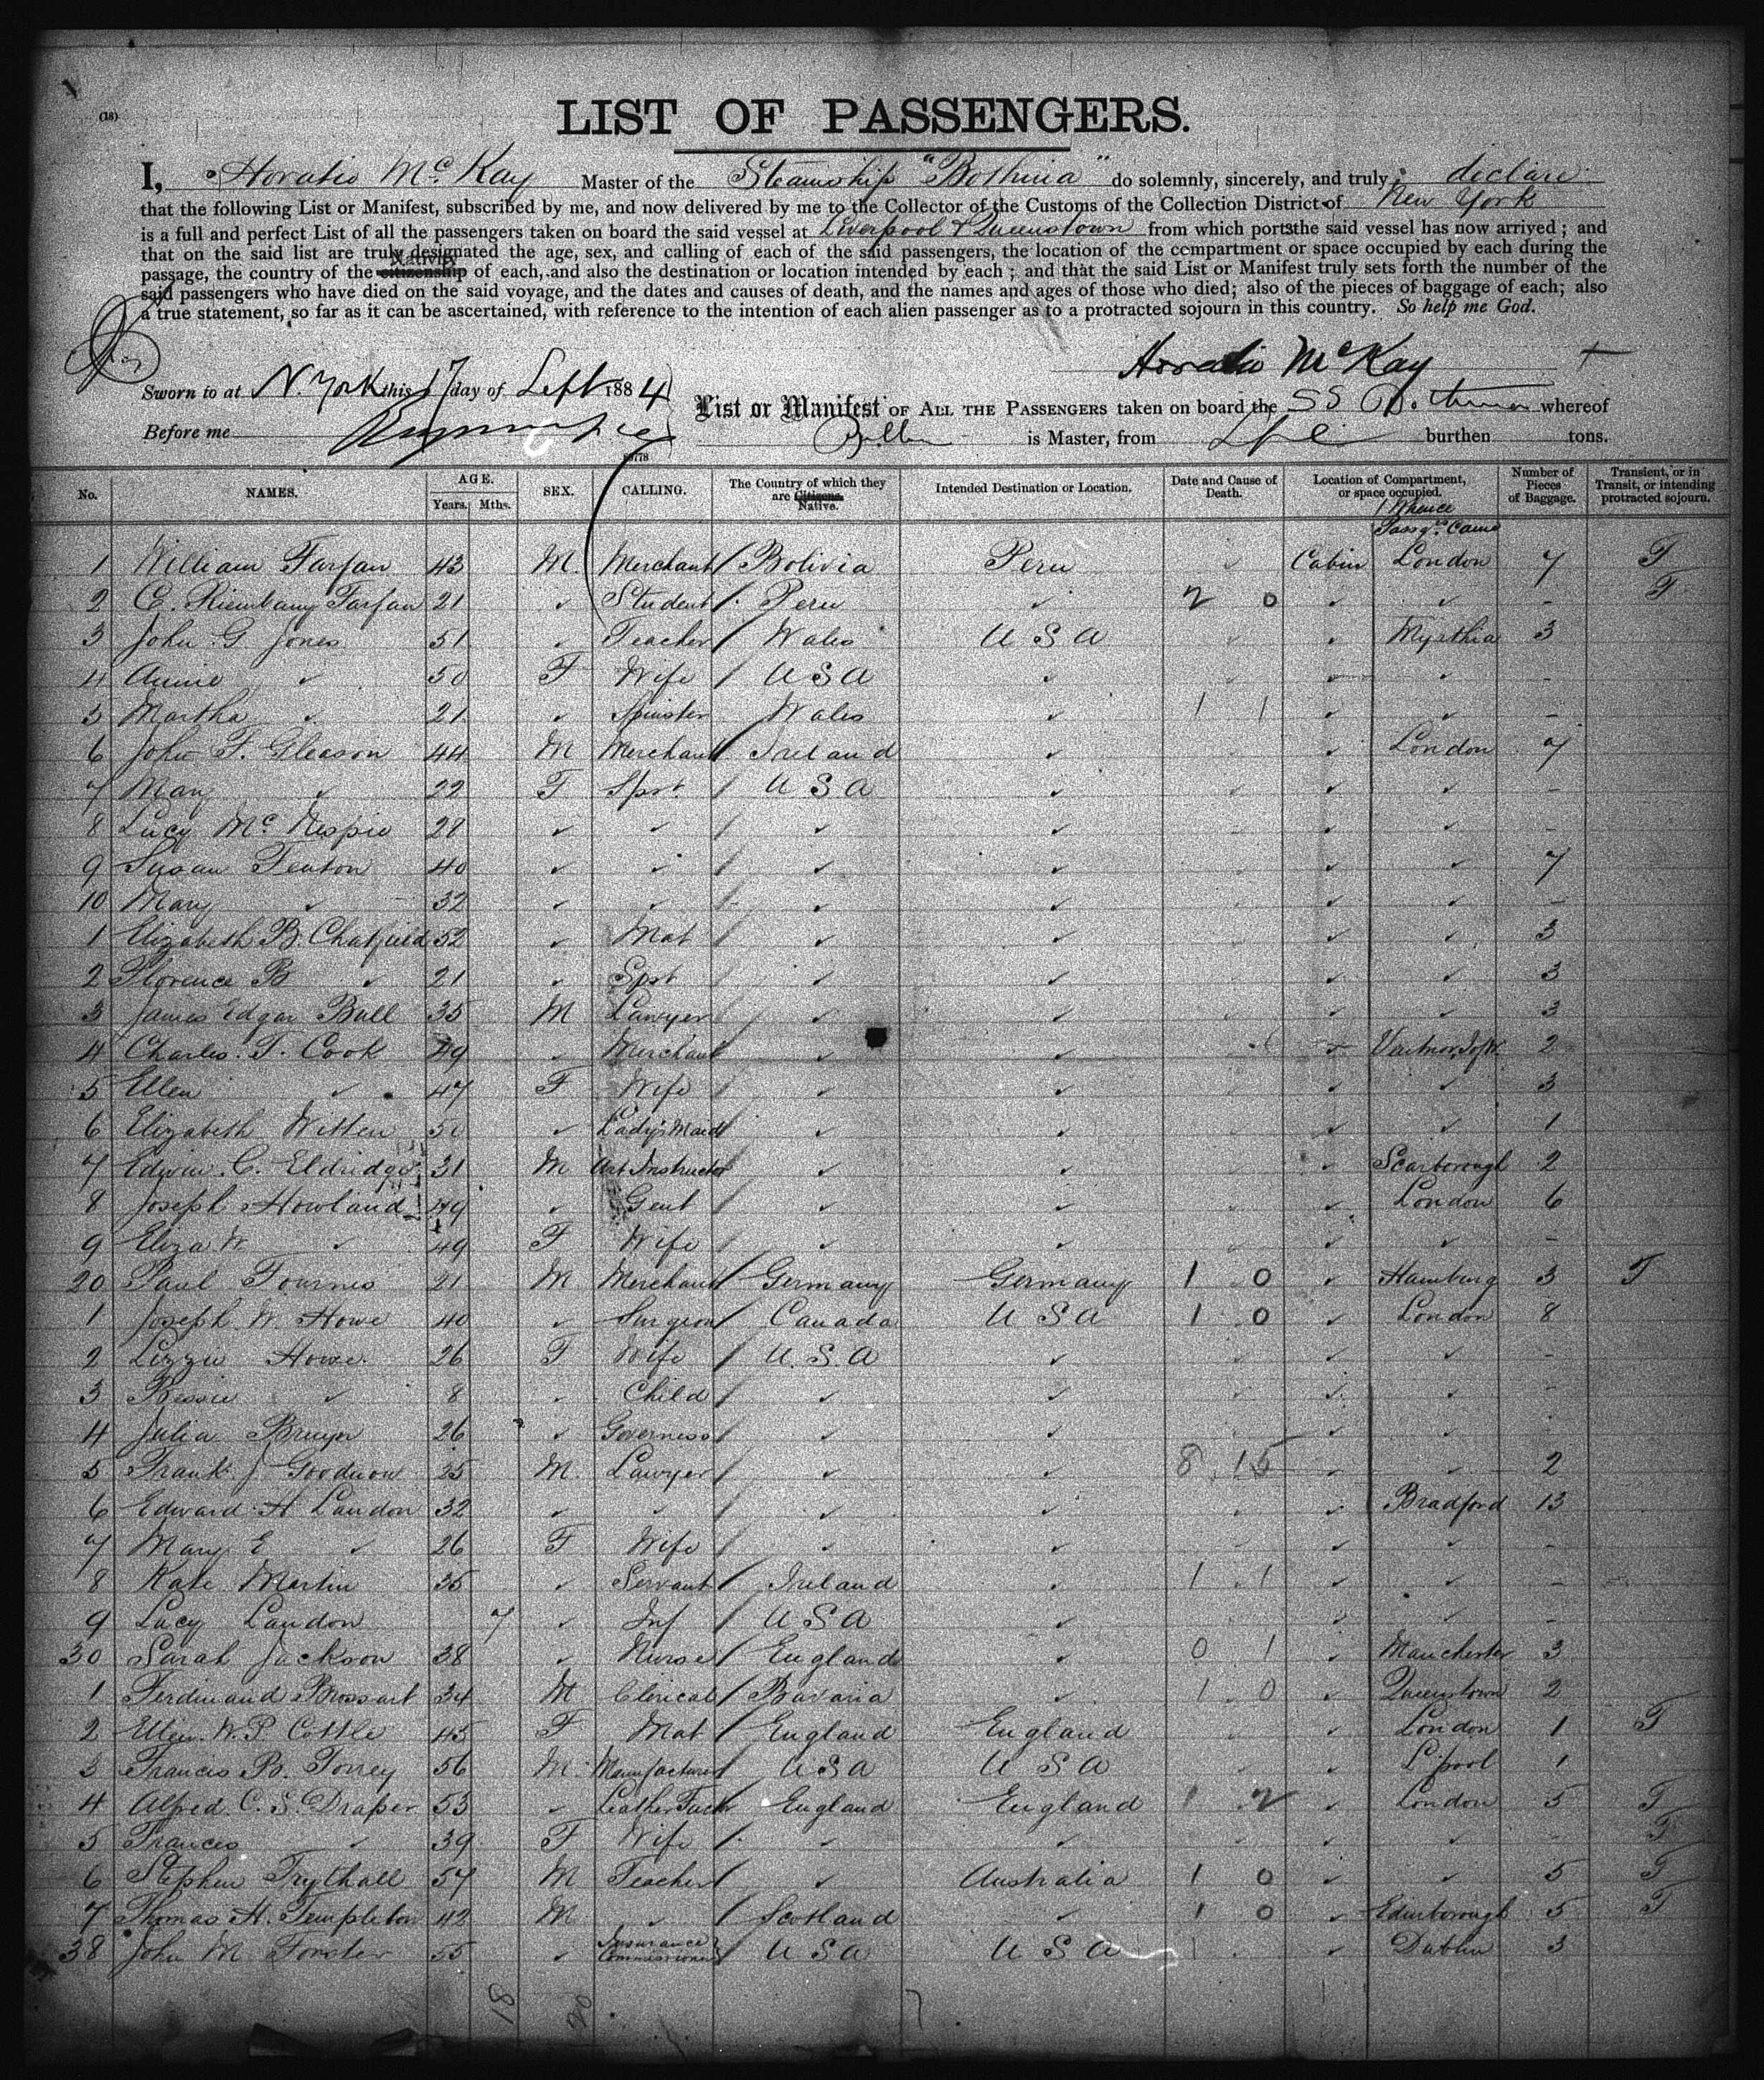 (18)
LIST OF PASSENGERS.
I, Horatio McKay Master of the Steamship "Bothnia" do solemnly, sincerely, and truly declare
that the following List or Manifest, subscribed by me, and now delivered by me to the Collector of the Customs of the Collection District of New York
is a full and perfect List of all the passengers taken on board the said vessel at Liverpool & Queenstown from which ports the said vessel has now arrived; and
that on the said list are truly designated the age, sex, and calling of each of the said passengers, the location of the compartment or space occupied by each during the
Nativity
passage, the country of the citizenship of each, and also the destination or location intended by each; and that the said List or Manifest truly sets forth the number of the
said passengers who have died on the said voyage, and the dates and causes of death, and the names and ages of those who died; also of the pieces of baggage of each; also
a true statement, so far as it can be ascertained, with reference to the intention of each alien passenger as to a protracted sojourn in this country. So help me God.
Horatio McKay
Sworn to at N. York this 17 day of Sept 1884
List or Manifest OF ALL THE PASSENGERS taken on board the SS Bothnia whereof
Before me
is Master, from Lpl burthen tons.
No. NAMES. AGE. Years. Mths. SEX. CALLING. The Country of which they are Citizens. Native. Intended Destination or Location. Date and Cause of Death. Location of Compartment, or space occupied. Number of Pieces of Baggage. Transient, or in Transit, or intending protracted sojourn.
Whence Passgrs. Came
1 William Farfan 43 M. Merchant / Bolivia Peru ✓ Cabin London 7 T
2 E. Farfan 21 ✓ Student / Peru ✓ 2 0 ✓ ✓ - T
3 John G. Jones 51 ✓ Teacher / Wales U S A ✓ Myrthia 3
4 Annie ✓ 50 F Wife / U S A ✓ ✓ ✓ -
5 Martha ✓ 21 ✓ Spinster Wales ✓ 1 1 ✓ ✓ -
6 John F. Gleason 44 M Merchant Ireland ✓ ✓ London 7
7 Mary ✓ 22 F Spst. / U S A ✓ ✓ ✓ -
8 Lucy Mc 28 ✓ ✓ / ✓ ✓ ✓ ✓ -
9 Susan Fenton 40 ✓ ✓ / ✓ ✓ ✓ ✓ 7
10 Mary ✓ 32 ✓ ✓ ✓ ✓ ✓ ✓ -
1 Elizabeth B. Chatfield 52 ✓ Mat / ✓ ✓ ✓ ✓ 3
2 Florence B ✓ 21 ✓ Spst / ✓ ✓ ✓ ✓ 3
3 James Edgar Bull 35 M Lawyer / ✓ ✓ ✓ ✓ 3
4 Charles. T. Cook 49 ✓ Merchant ✓ ✓ ✓ 2
5 Ellen ✓ 47 F Wife / ✓ ✓ ✓ ✓ 3
6 Elizabeth Witten ✓ Lady's Maid ✓ ✓ ✓ ✓ 1
7 Edwin. C. Eldridge 31 M Art Instructor ✓ ✓ ✓ Scarborough 2
8 Joseph Howland 49 ✓ Gent / ✓ ✓ ✓ London 6
9 Eliza W. ✓ 49 F Wife / ✓ ✓ ✓ ✓ -
20 Paul 21 M Merchant / Germany Germany 1 0 ✓ Hamburg 3 T
1 Joseph W. Howe 40 ✓ Surgeon / Canada U S A 1 0 ✓ London 8
2 Lizzie Howe. 26 F Wife / U. S. A ✓ ✓ ✓ -
3 Bessie ✓ 8 ✓ Child / ✓ ✓ ✓ ✓ -
4 Julia 26 ✓ Governess / ✓ ✓ ✓ ✓
5 Frank J Goodnow 25 M. Lawyer / ✓ ✓ 8 15 ✓ ✓ 2
6 Edward H Landon 32 ✓ ✓ / ✓ ✓ ✓ Bradford 13
7 Mary E ✓ 26 F Wife / ✓ ✓ ✓ ✓ -
8 Kate Martin 35 ✓ Servant / Ireland ✓ 1 1 ✓ ✓ -
9 Lucy Landon 7 ✓ Inf / U S A ✓ ✓ ✓ -
30 Sarah Jackson 38 ✓ Nurse / England ✓ 0 1 ✓ Manchester 3
1 Ferdinand Brossart 34 M Clerical / Bavaria ✓ 1 0 ✓ Queenstown 2
2 Ellen. W. P. Cottle 45 F Mat / England England ✓ London 1 T
3 Francis B. Torrey 56 M. Manufacturer / U S A U S A ✓ L'pool 1
4 Alfred. C. S. Draper 53 ✓ Leather Factr England England 1 2 ✓ London 5 T
5 Frances ✓ 39 F Wife / ✓ ✓ ✓ ✓ - T
6 Stephen Trythall 57 M Teacher / ✓ Australia 1 0 ✓ ✓ 5 T
7 Thomas H. Templeton 42 M ✓ / Scotland ✓ 1 0 ✓ Edinborough 5 T
38 John M Forster 55 ✓ Insurance Commissioner / U S A U S A 1 ✓ Dublin 3
18 20